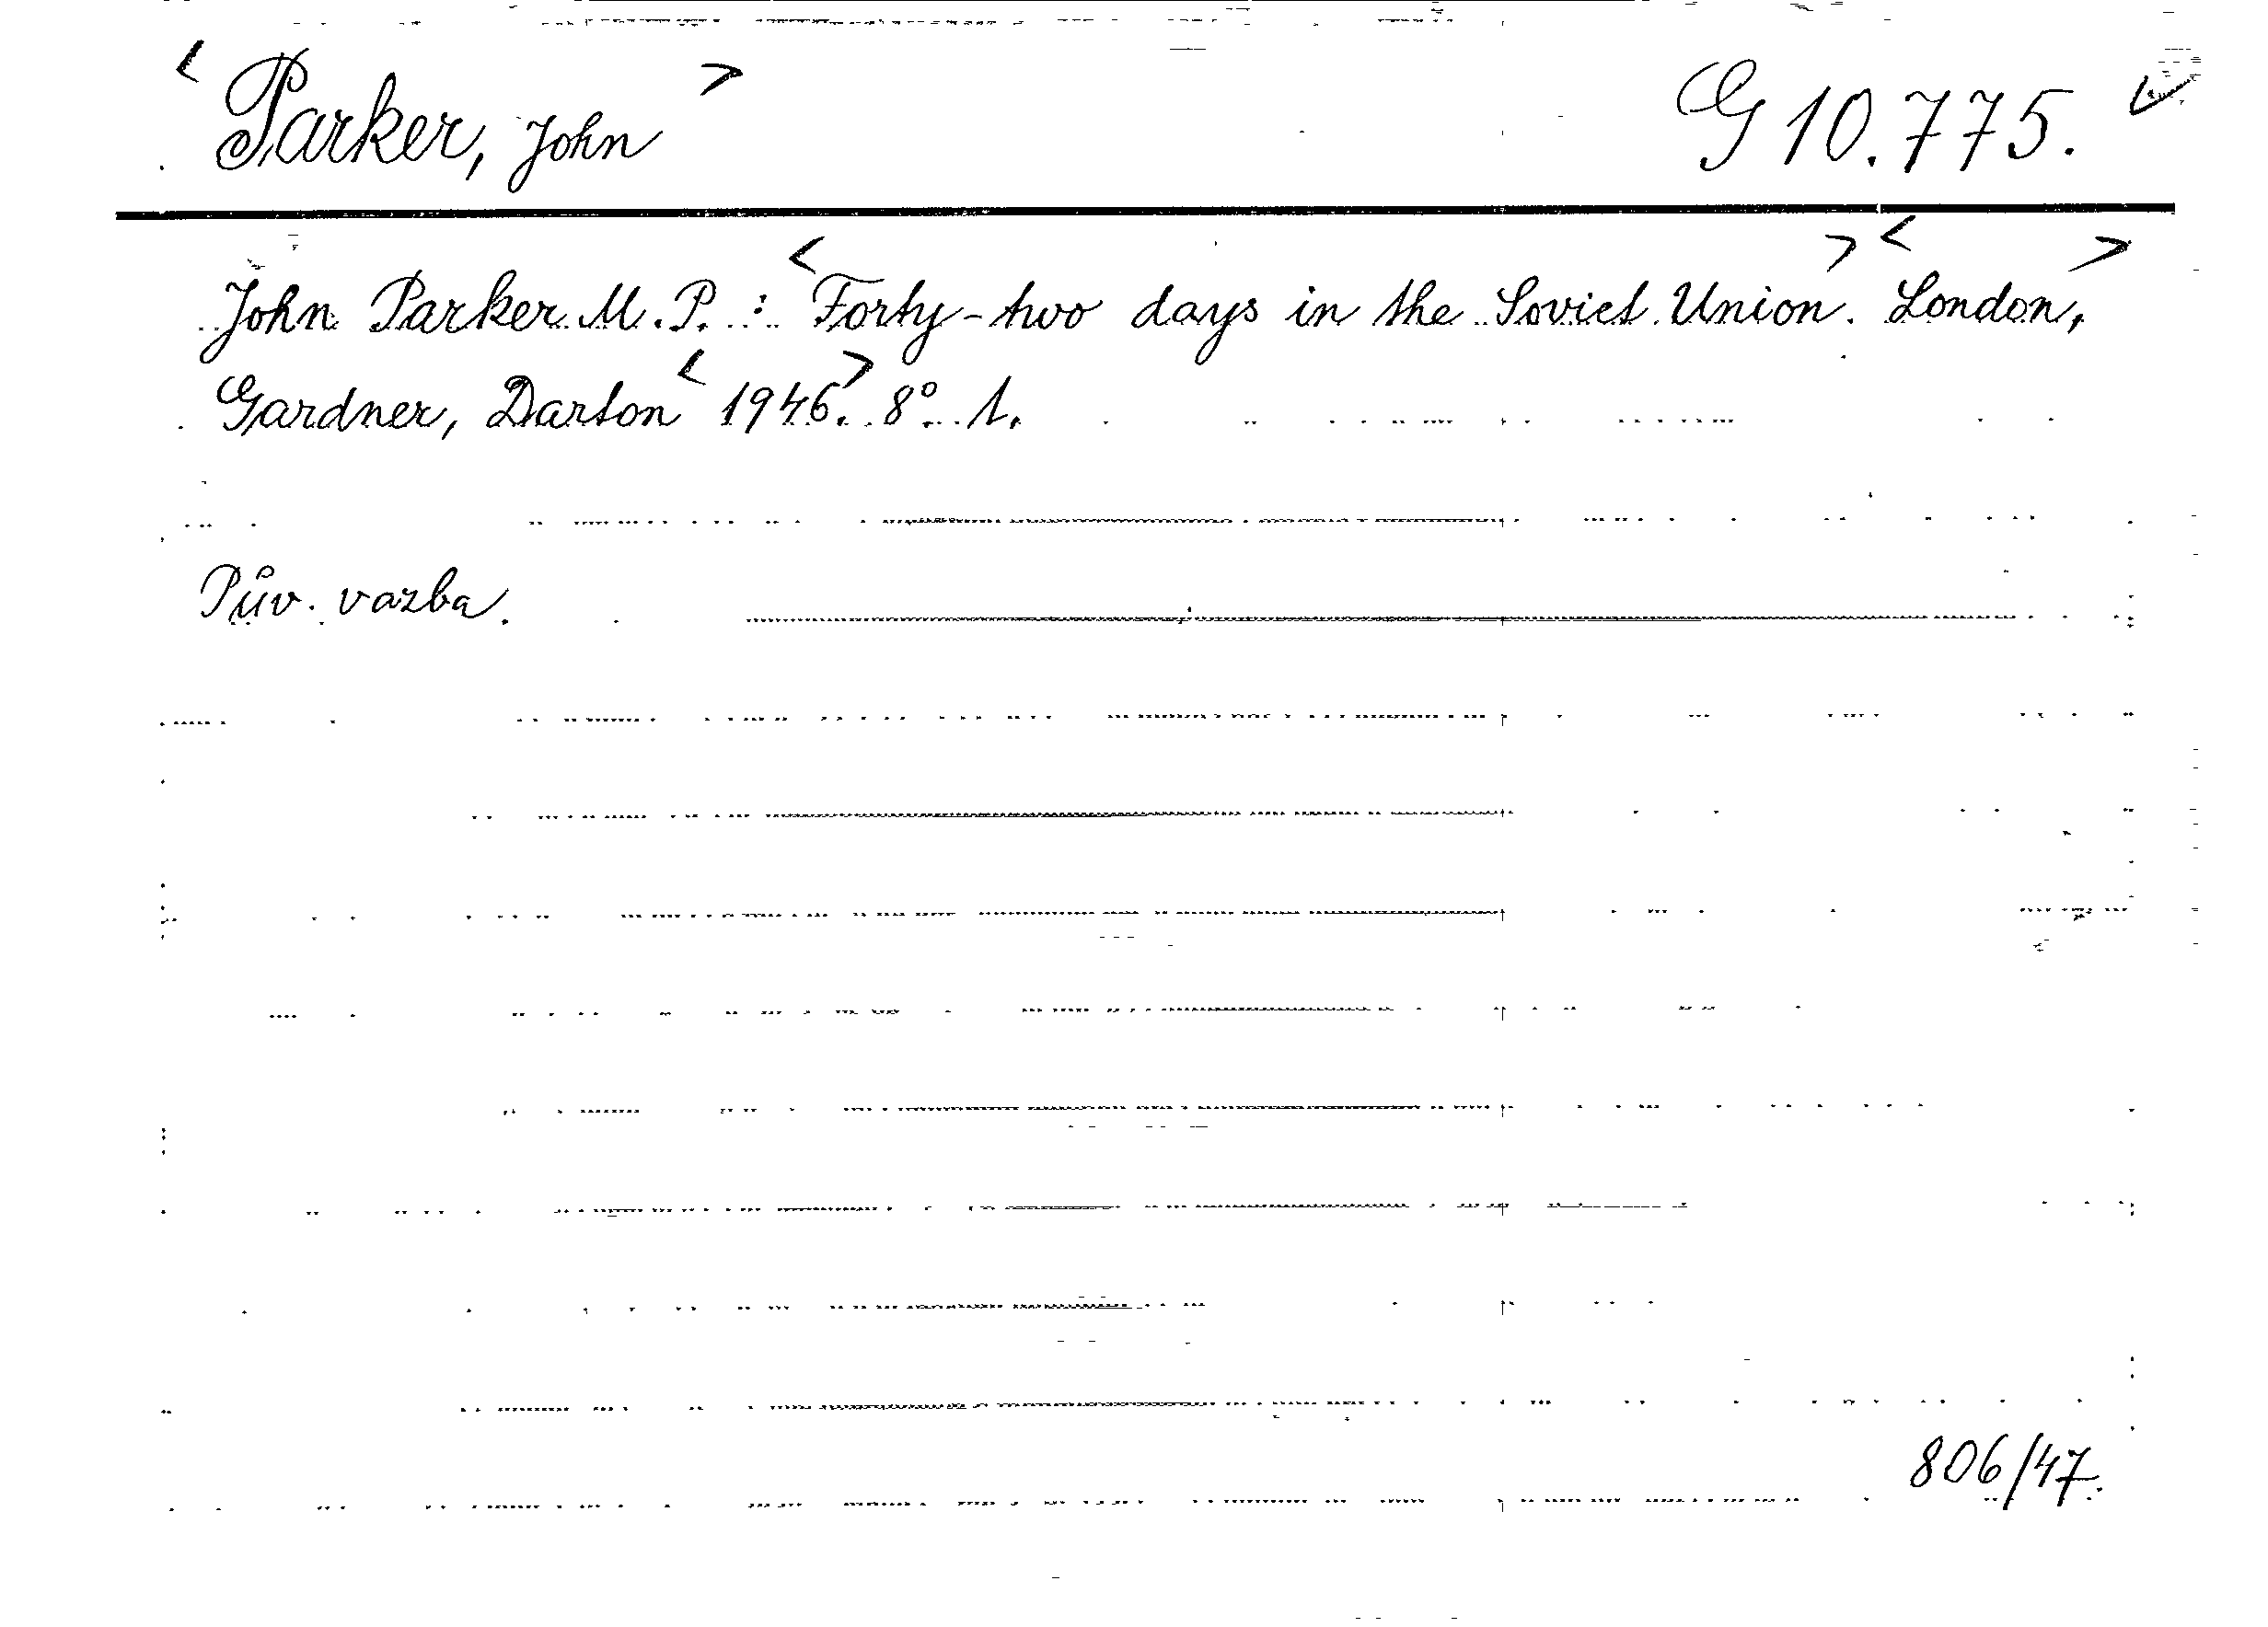 <Parker, John> G 10.775.
John Parker M.P.: <Forty-two days in the Soviet Union>. <London,>
Gardner, Darton <1946>. 8° 1.
Pův. vazba.
806/47.